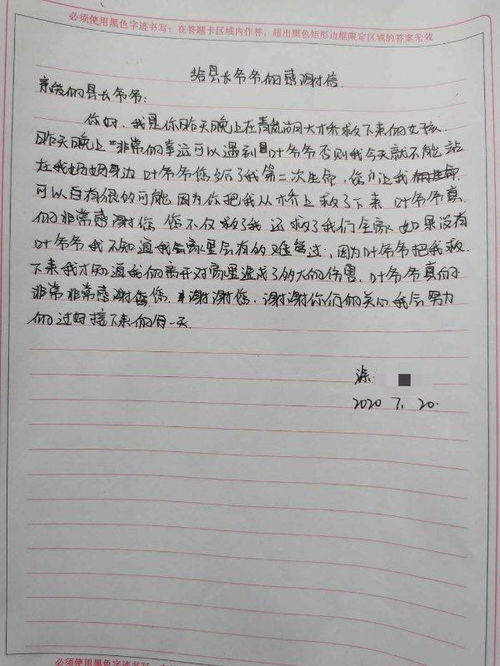 必须使用黑色字迹书写：在答题卡区域内作答，超出黑色矩形边框限定区域的答案无效
给县长爷爷的感谢信
亲爱的县长爷爷：
你好，我是你昨天晚上在青岚湖大桥救下来的女孩，
昨天晚上非常的幸运可以遇到叶爷爷否则我今天就不能站
在我妈妈身边 叶爷爷您给了我第二次生命，您让我
可以自有很的可能 因为你把我从桥上救了下来 叶爷爷真
的非常感谢您 您不仅救了我 还救了我们全家 如果没有
叶爷爷 我不知道我家里会有的难过，因为叶爷爷把我救
下来我才知道我的离开对家里造成了的大的伤害，叶爷爷真的
非常非常感谢您，谢谢您，谢谢你们的关心我会努力
的过好接下来的每一天
涂
2020 7. 20.
必须使用黑色字迹书写